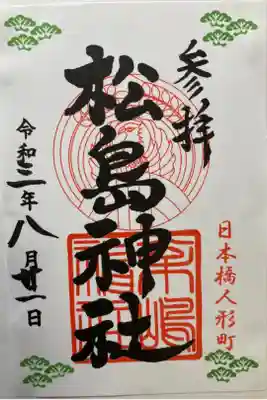 参拝
松島神社
令和三年八月廿一日
日本橋人形町